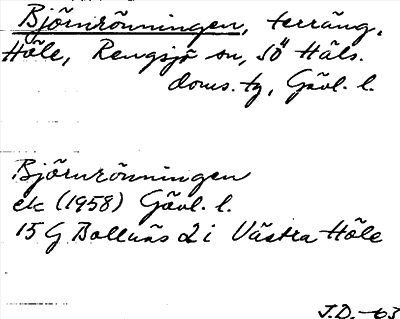 Björnrönningen, terräng,
Höle, Rengsjö sn, SÖ Häls.
doms. tg, Gävl. l.
Björnrönningen
ek (1958) Gävl. l.
15 G Bollnäs 2 i Västra Höle
J.D. -63